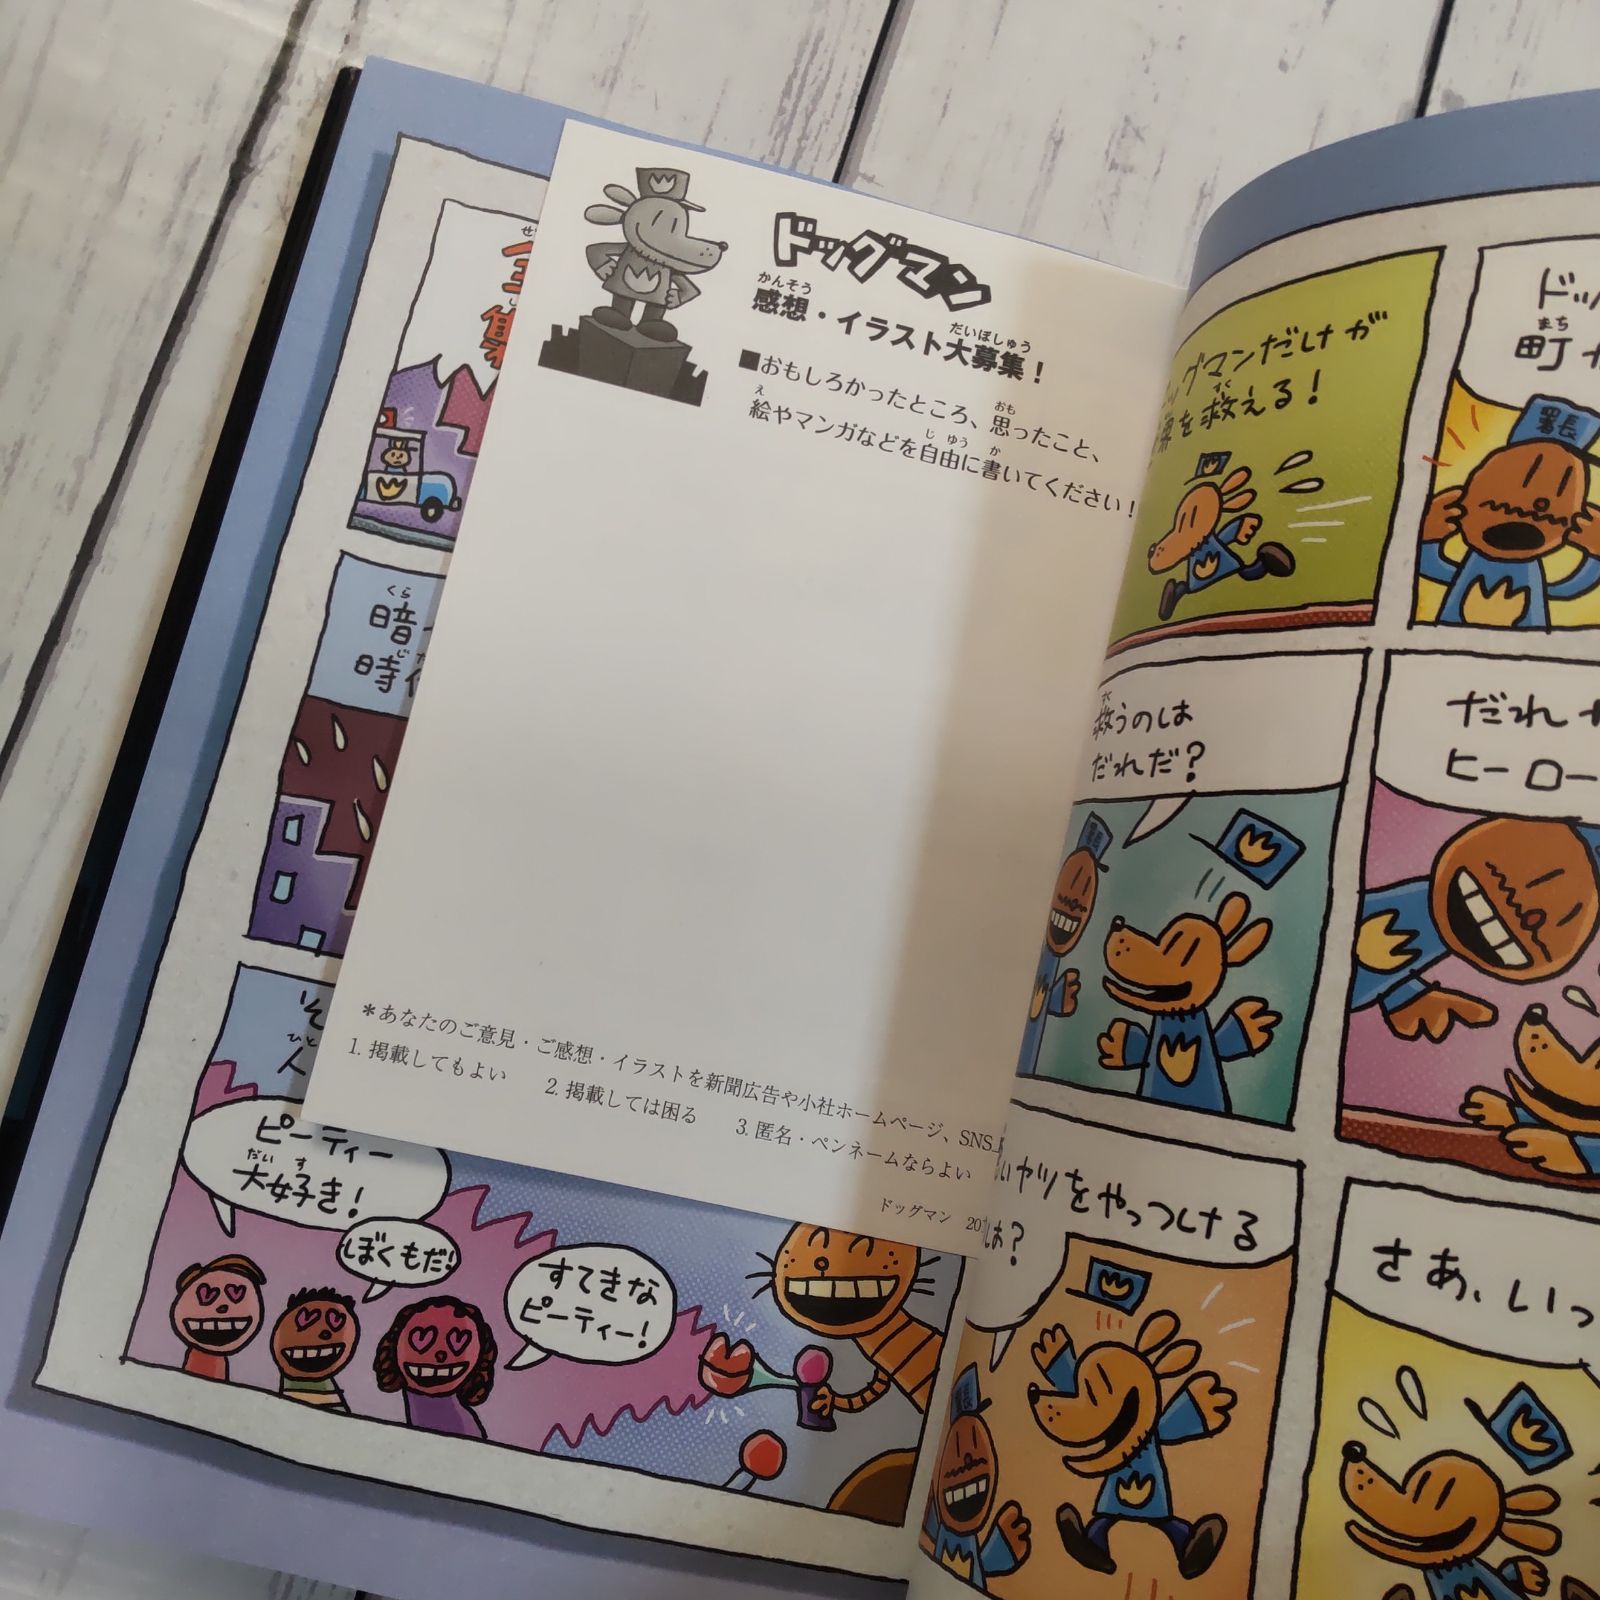 ドッグマン
かんそう だいぼしゅう
感想・イラスト大募集！
■おもしろかったところ、思ったこと、
おも
え じゆう か
絵やマンガなどを自由に書いてください！
＊あなたのご意見・ご感想・イラストを新聞広告や小社ホームページ、SNS
1. 掲載してもよい 2. 掲載しては困る 3. 匿名・ペンネームならよい
ドッグマン 20
くら
暗
時
ひと
人
ピーティー
だいす
大好き！
ぼくもだ！
すてきな
ピーティー！
グマンだけが
すく
を救える！
まち
町
署長
すく
救うのは
だれだ？
だれ
ヒーロー
署長
ヤツをやっつける
は？
署長
さあ、いっ